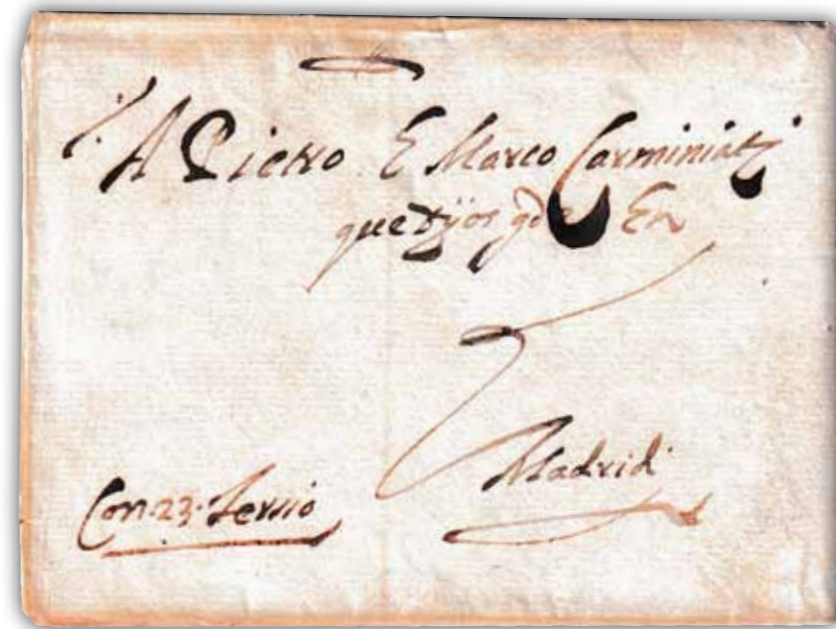 A Pietro E Marco Carminiatj
que dyos gde En
Madrid
Con 23